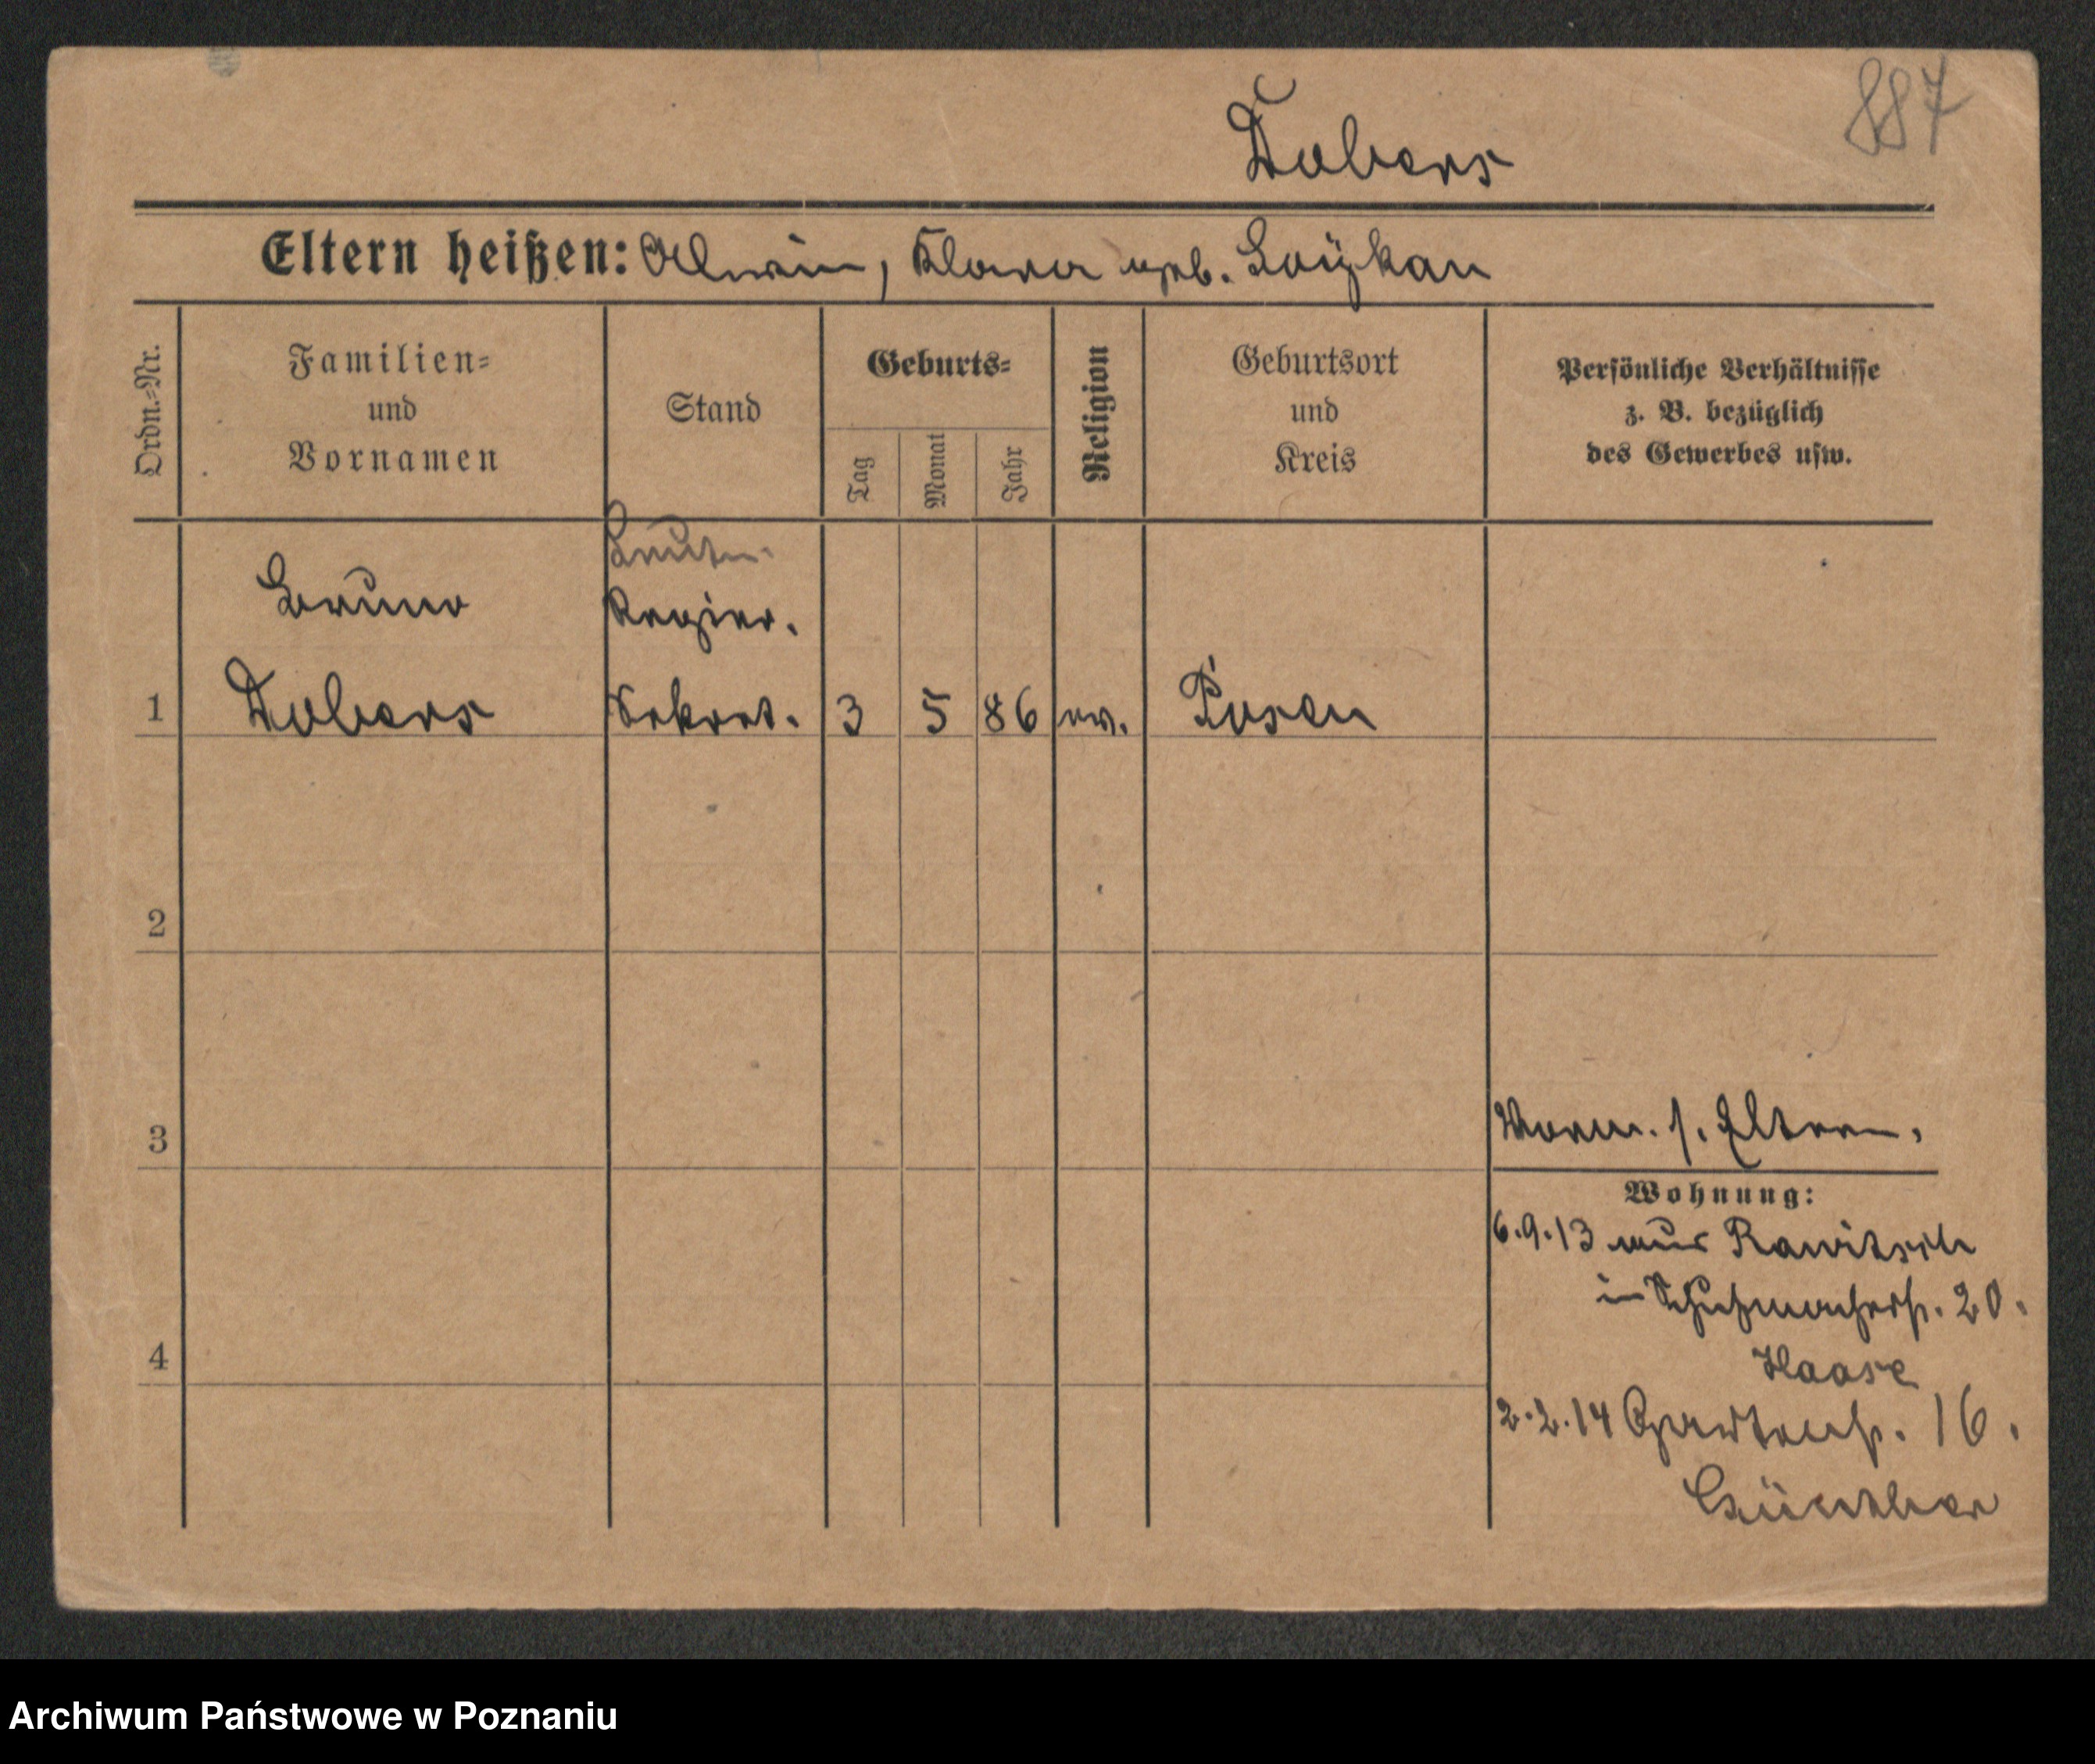 887
Dobers
Eltern heißen: Alwin, Klara geb.
Ordn.-Nr.
Familien-
und
Vornamen
Stand
Geburts-
Tag
Monat
Jahr
Religion
Geburtsort
und
Kreis
Persönliche Verhältnisse
z. B. bezüglich
des Gewerbes usw.
Bruno
Regier.
1 Dobers Sekret. 3 5 86 ev. Posen
2
3
Vorm. s. Eltern.
Wohnung:
6.9.13 aus Rawitsch
in Schuhmacherst. 20.
Haase
4
2.2.14 Gartenst. 16.
Günther
Archiwum Państwowe w Poznaniu